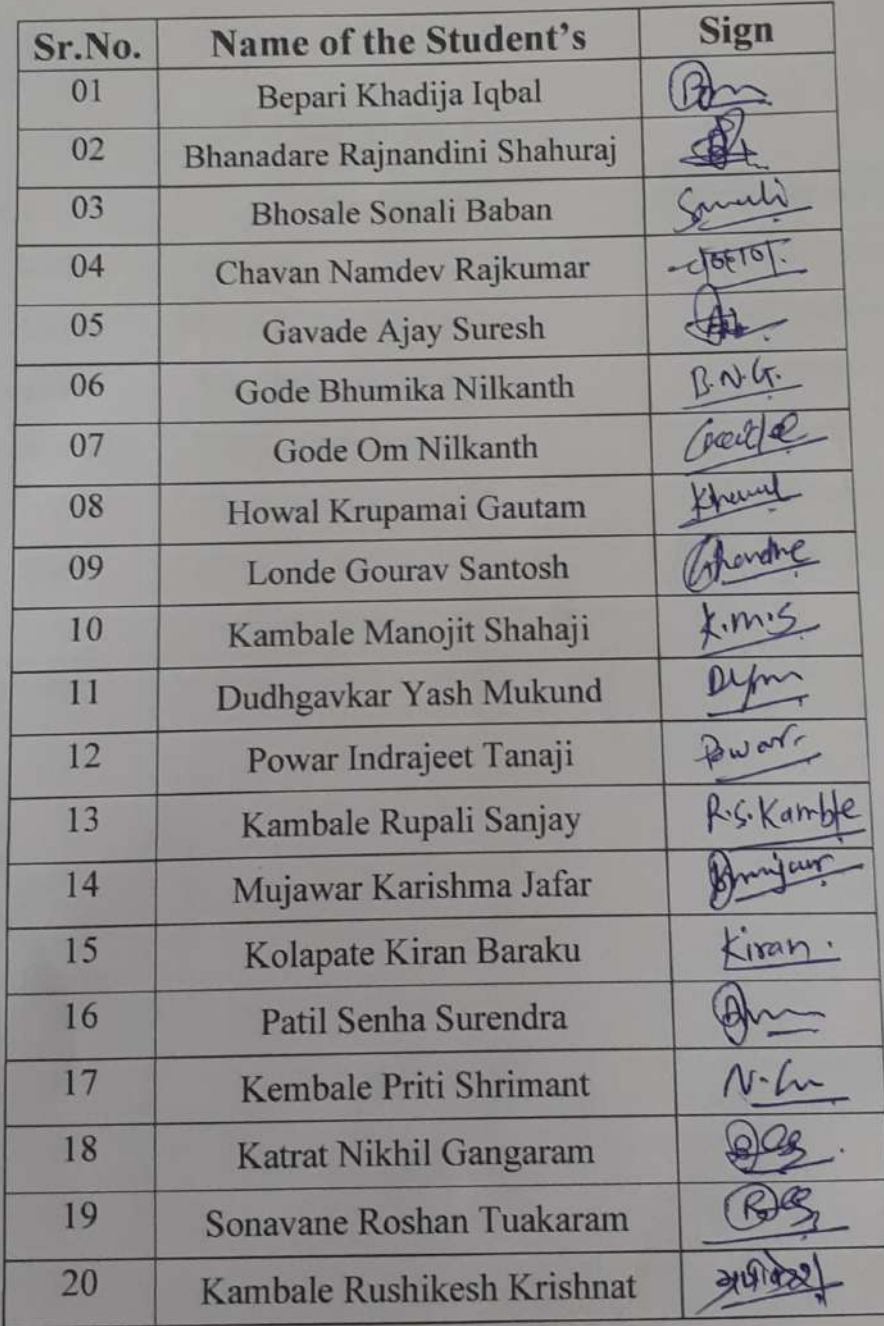 Sr.No. Name of the Student's Sign
01 Bepari Khadija Iqbal
02 Bhanadare Rajnandini Shahuraj
03 Bhosale Sonali Baban Sonali
04 Chavan Namdev Rajkumar
05 Gavade Ajay Suresh
06 Gode Bhumika Nilkanth B.N.G.
07 Gode Om Nilkanth
08 Howal Krupamai Gautam
09 Londe Gourav Santosh
10 Kambale Manojit Shahaji K.M.S
11 Dudhgavkar Yash Mukund
12 Powar Indrajeet Tanaji Powar
13 Kambale Rupali Sanjay R.S.Kamble
14 Mujawar Karishma Jafar
15 Kolapate Kiran Baraku Kiran.
16 Patil Senha Surendra
17 Kembale Priti Shrimant
18 Katrat Nikhil Gangaram
19 Sonavane Roshan Tuakaram
20 Kambale Rushikesh Krishnat